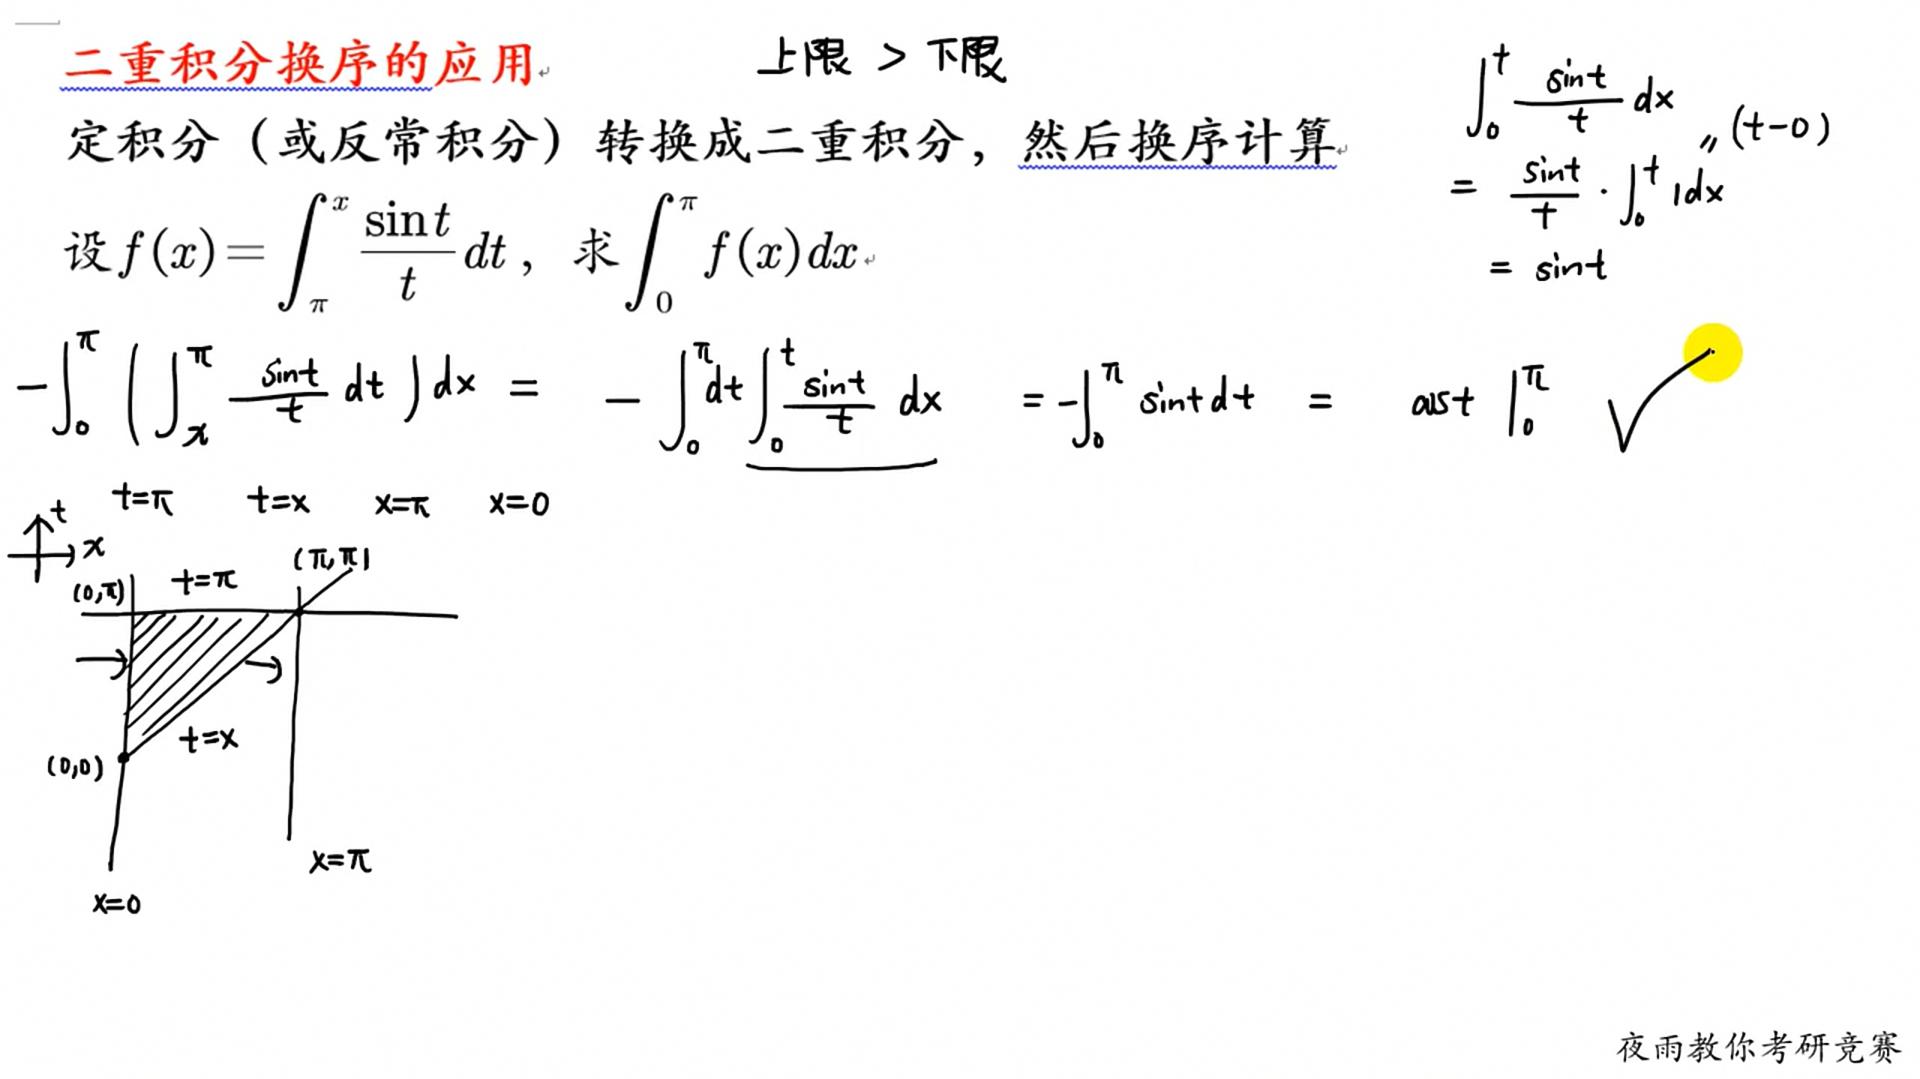 二重积分换序的应用
上限 > 下限
定积分（或反常积分）转换成二重积分，然后换序计算
设 f(x)=∫_π^x (sin t)/t dt，求 ∫_0^π f(x)dx
∫_0^t (sint)/t dx
= (sint)/t · ∫_0^t 1dx 〃(t-0)
= sint
-∫_0^π (∫_x^π (sint)/t dt) dx = -∫_0^π dt ∫_0^t (sint)/t dx = -∫_0^π sint dt = cost |_0^π √
t=π t=x x=π x=0
t
x
(π,π)
(0,π)
t=π
t=x
(0,0)
x=π
x=0
夜雨教你考研竞赛